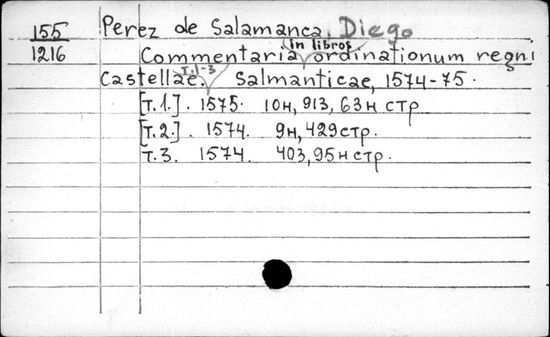 155 Perez de Salamanca, Diego
1216 Commentaria in libros ordinationum regni
Castellae. т.1-3 Salmanticae, 1574-75.
[т.1.]. 1575. 10н, 913, 63н стр
[т.2.]. 1574. 9н, 429стр.
т.3. 1574. 403, 95н стр.